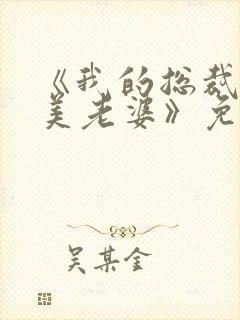 《我的总裁
美老婆》免
吴某金